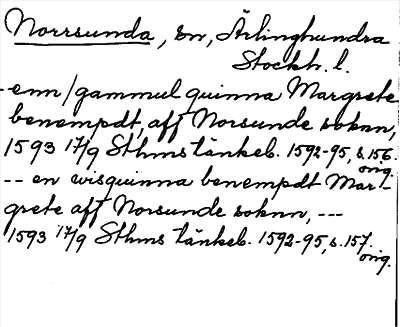 Norrsunda, sn, Ärlinghundra
Stockh. l.
-enn/gammul quinna Margrete
benempdt, aff Norsunde soknn,
1593 17/9 Sthms tänkeb. 1592-95, s. 156.
orig.
-- en wisquinna benempdt Mar-
grete aff Norsunde soknn, ---
1593 17/9 Sthms tänkeb. 1592-95, s. 157.
orig.